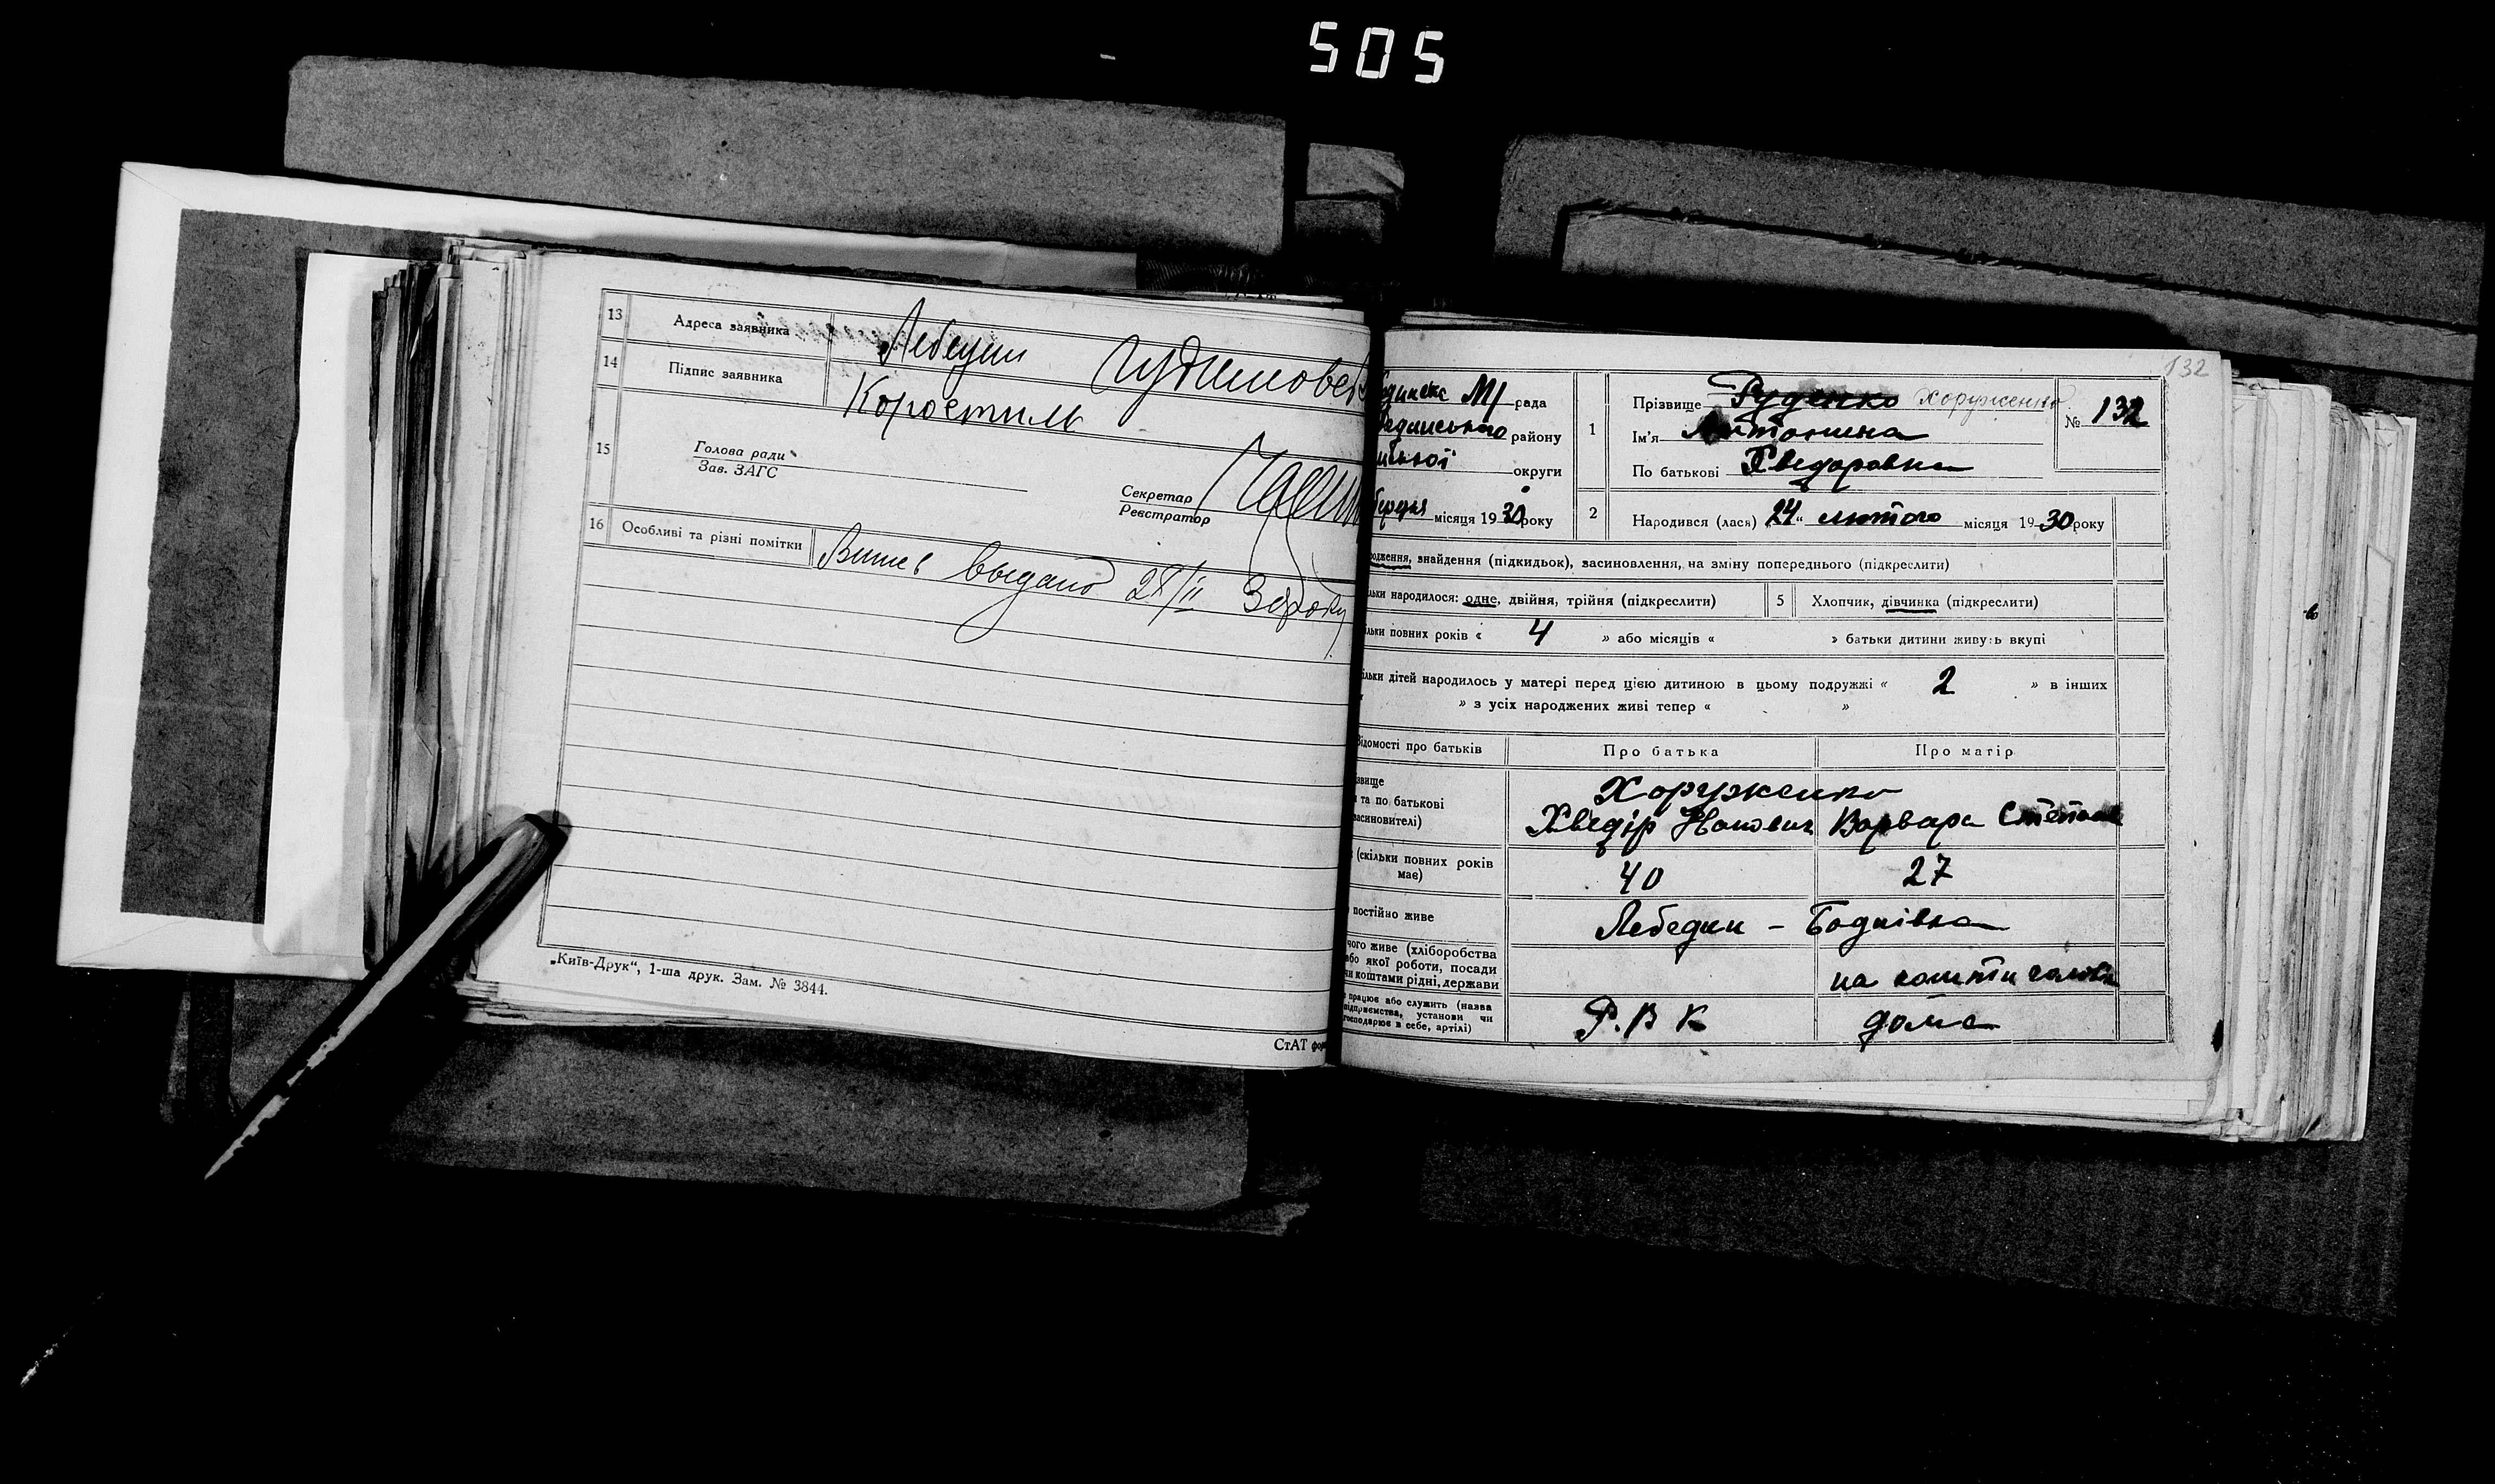 505
13 Адреса заявника Лебедин
14 Підпис заявника Коростиль
15 Голова ради
Зав. ЗАГС
Секретар
Реєстратор
16 Особливі та різні помітки выдано 30 року
„Київ-Друк“, 1-ша друк. Зам. № 3844.
СтАТ
132
МР рада
району
округи
місяця 1930 року
1 Прізвище Руденко Хоруженко
№ 132
Ім'я Антонина
По батькові Хведоровна
2 Народився (лася) 24 „ лютого місяця 1930 року
знайдення (підкидьок), засиновлення, на зміну попереднього (підкреслити)
народилося: одне, двійня, трійня (підкреслити) 5 Хлопчик, дівчинка (підкреслити)
повних років « 4 » або місяців « » батьки дитини живуть вкупі
дітей народилось у матері перед цією дитиною в цьому подружжі « 2 » в інших
» з усіх народжених живі тепер « »
про батьків Про батька Про матір
та по батькові
Хоруженко
Хведір Варвара
(скільки повних років має) 40 27
постійно живе Лебедин –
живе (хліборобства
або якої роботи, посади
чи коштами рідні, держави
на кошти
працює або служить (назва
підприємства, установи чи
господарює в себе, артілі)
Р. В К дома